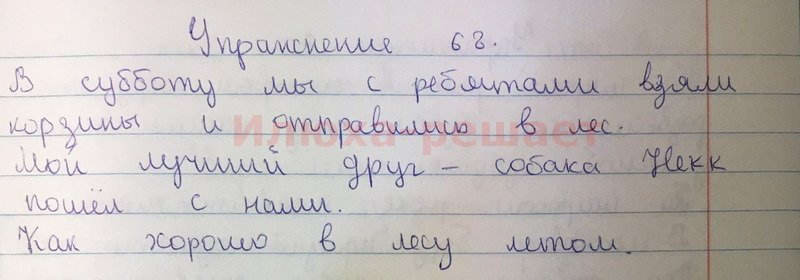 Упражнение 68.
В субботу мы с ребятами взяли
корзины и отправились в лес.
Илюха решает
Мой лучший друг – собака Некк
пошёл с нами.
Как хорошо в лесу летом.